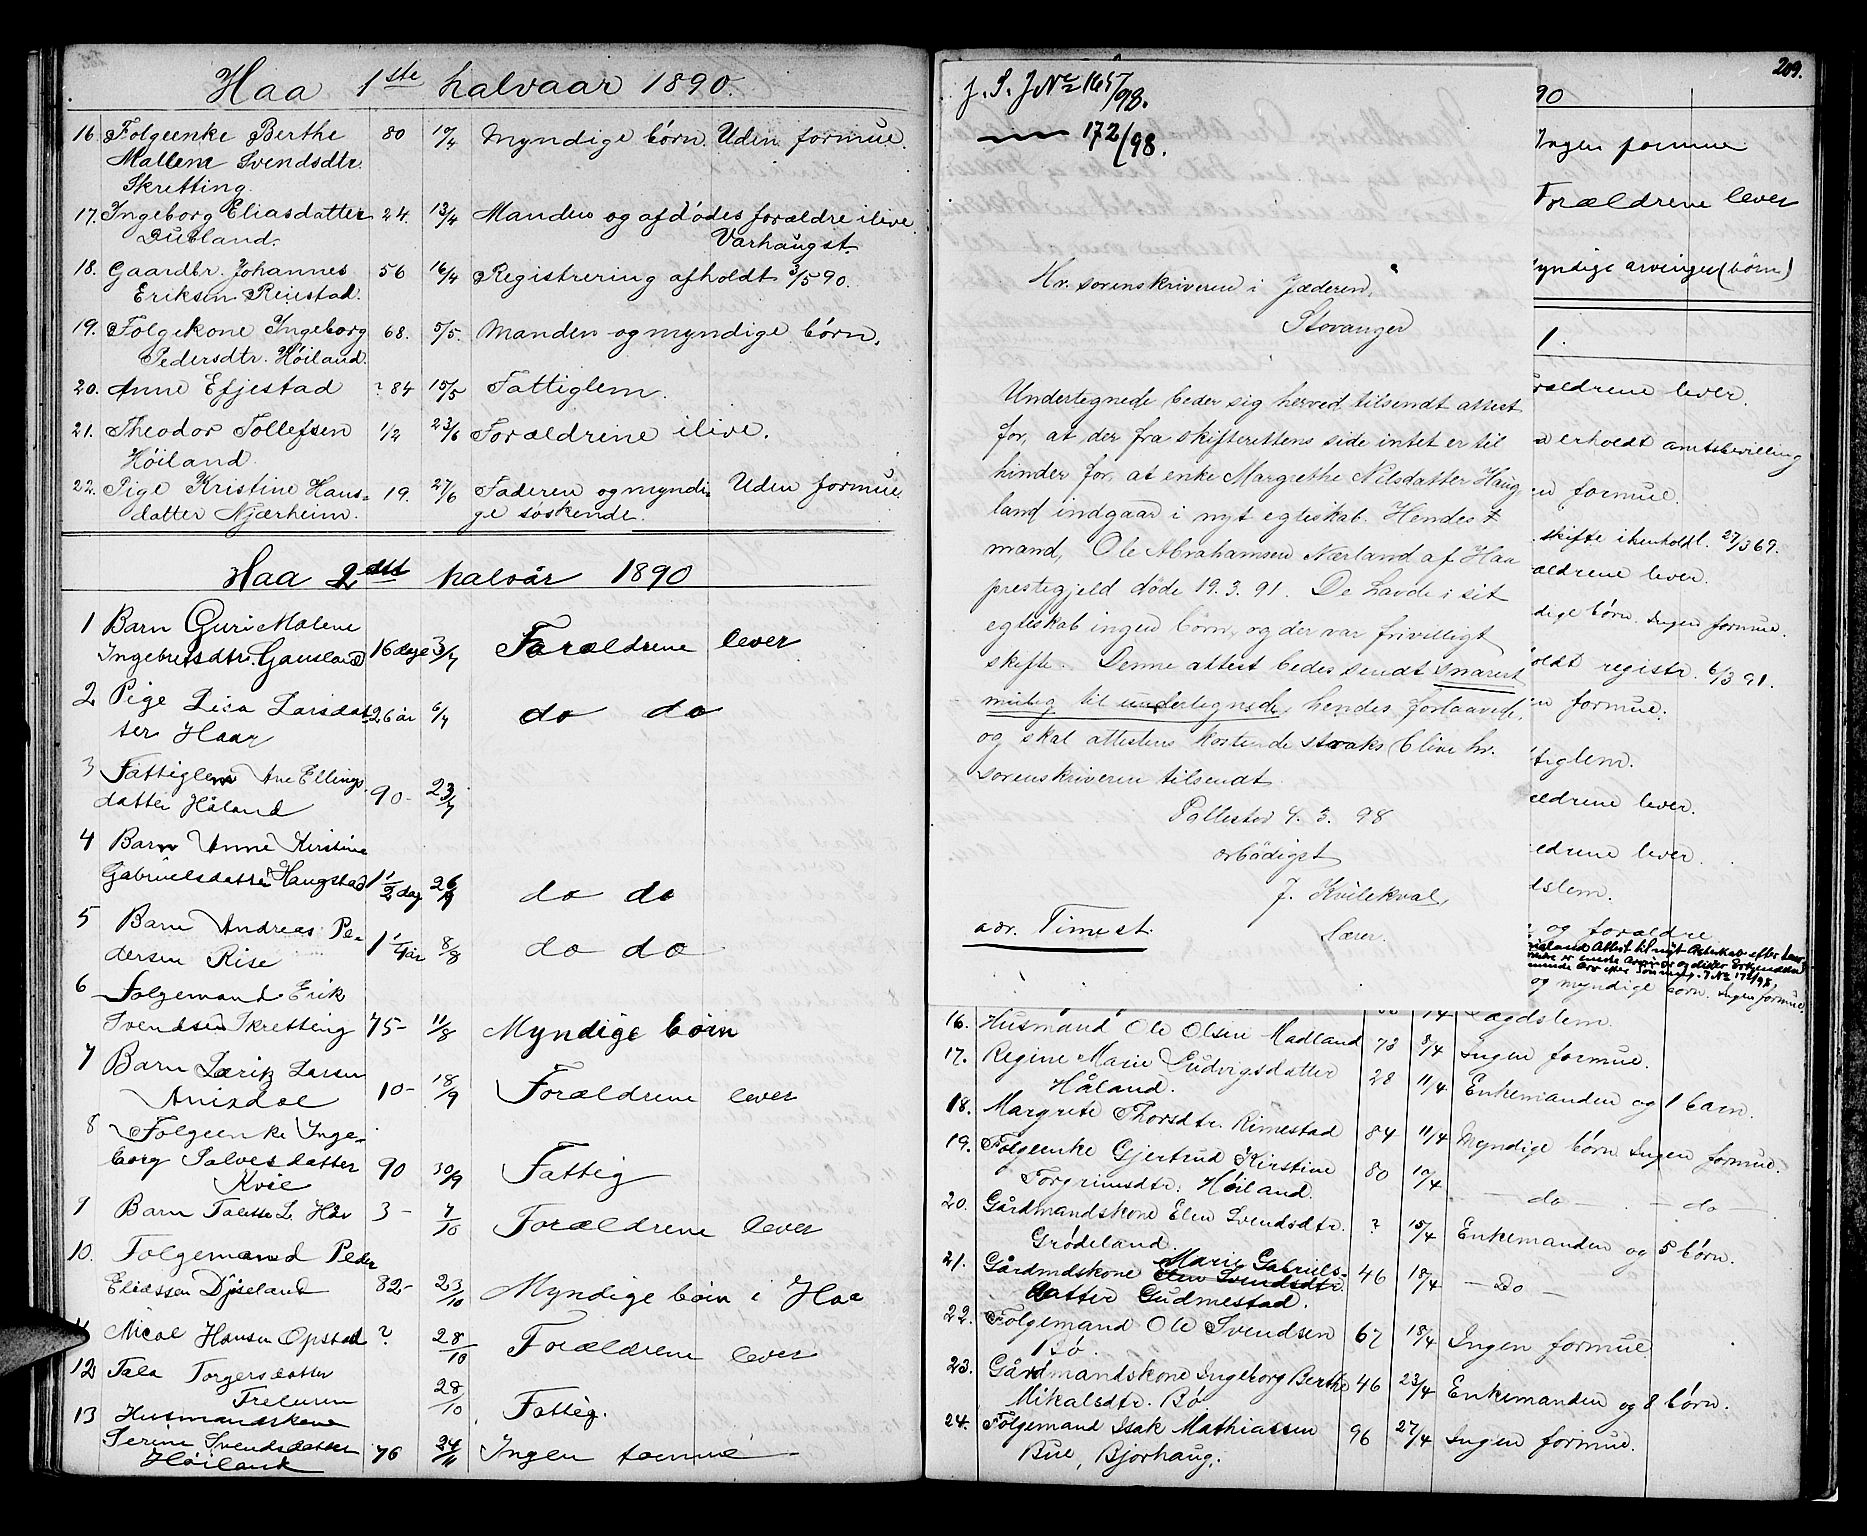 Haa 1ste halvaar 1890.
16. Folgeenke Berthe 80 10/4 Myndige börn. Uden formue.
Mallene Svendsdtr.
Skretting.
17. Ingeborg Eliasdatter 24. 13/4 Manden og afdødes forældre ilive.
Dubland. Varhaugst.
18. Gaardbr. Johannes 56 16/4 Registrering afholdt 3/5 90.
Eriksen Reiestad.
19. Folgekone Ingeborg 68. 5/5. Manden og myndige börn.
Pedersdtr. Höiland.
20. Anne Efjestad ? 84 15/5 Fattiglem.
21. Theodor Tollefsen 1/2 23/6 Forældrene ilive.
Höiland.
22. Pige Kristine Hans= 19. 27/6 Faderen og myndi= Uden formue.
datter Njærheim. ge söskende.
Haa 2det halvår 1890
1 Barn Guri Malene
Ingebretsdtr. Gausland 16 dage 3/7 Forældrene lever
2 Pige Lisa Larsdat= 26 år 6/7 do do
ter Haar
3 Fattiglem Ane Ellings
datter Håland 90- 23/7
4 Barn Anne Kirstine
Gabrielsdatter Haugstad 1 1/2 dag 26/7 do do
5 Barn Andreas Pe-
dersen Rise 1 1/4 år 8/8 do do
6 Folgemand Erik
Svendsen Skretting 75- 11/8 Myndige börn
7 Barn Lærik Larsen
Anisdal 10- 18/9 Forældrene lever
8 Folgeenke Inge-
borg Salvesdatter 90 30/9 Fattig
Kvie
9 Barn Talette L. Håv 3- 7/10 Forældrene lever
10. Folgemand Peder
Eliassen Djöseland 82- 23/10 Myndige börn i Haa
11 Nicol Hansen Opstad ? 28/10 Forældrene lever
12 Tala Torgersdatter
28/10 Fattig.
13 Husmandskone
Serine Svendsdatter 76 24/11 Ingen formue
Höiland
209.
90
Ingen formue
Forældrene lever
yndige arvinger (börn)
1.
rældrene lever.
erholdt amtsbevilling
formue.
skifte i henhold t. 27/3 69.
ældrene lever.
dige börn. Ingen formue.
oldt registr. 6/3 91.
en formue.
tiglem.
ældrene lever.
eldrene lever.
dslem.
og forældre
og myndige börn. Ingen formue.
J. S. J No 165/98.
—— 172/98.
Hr. sorenskriveren i Jæderen,
Stavanger
Undertegnede beder sig herved tilsendt attest
for, at der fra skifterettens side intet er til
hinder for, at enke Margrethe Nilsdatter Haug
land indgaar i nyt egteskab. Hendes †
mand, Ole Abrahamsen Nærland af Haa
prestegjeld døde 19.3.91. De havde i sit
egteskab ingen börn, og der var frivilligt
skifte. Denne attest bedes sendt snarest
mulig til undertegnede, hendes forlovede,
og skal attestens kostende straks blive hr.
sorenskriveren tilsendt.
Pollestad 4. 3. 98
ærbödigst
J. Kvilekval,
lærer.
adr. Time st.
16. Husmand Ole Olsen Madland 73 8/4 Ingen formue.
17. Regine Marie Ludvigsdatter 28 11/4 Enkemanden og 1 barn.
Håland.
18. Margrete Thorsdtr. Rimestad 84 11/4 Myndige börn Ingen formue.
19. Folgeenke Gjertrud Kirstine 80 10/4 — do — — do —
Torgrimsdtr. Höiland.
20. Gårdmandskone Elen Svendsdtr. ? 15/4 Enkemanden og 5 börn.
Grødeland.
21. Gårdmdskone Elen Svendsdtr. Marie Gabriels= 46 18/4 — Do —
datter Gudmestad.
22. Folgemand Ole Svendsen 67 18/4 Ingen formue.
Bö.
23. Gårdmandskone Ingeborg Berthe 46 23/4 Enkemanden og 8 börn.
Mikalsdtr. Bö.
24. Folgemand Isak Mathiassen 96 27/4 Ingen formue.
Bue, Bjorhaug.